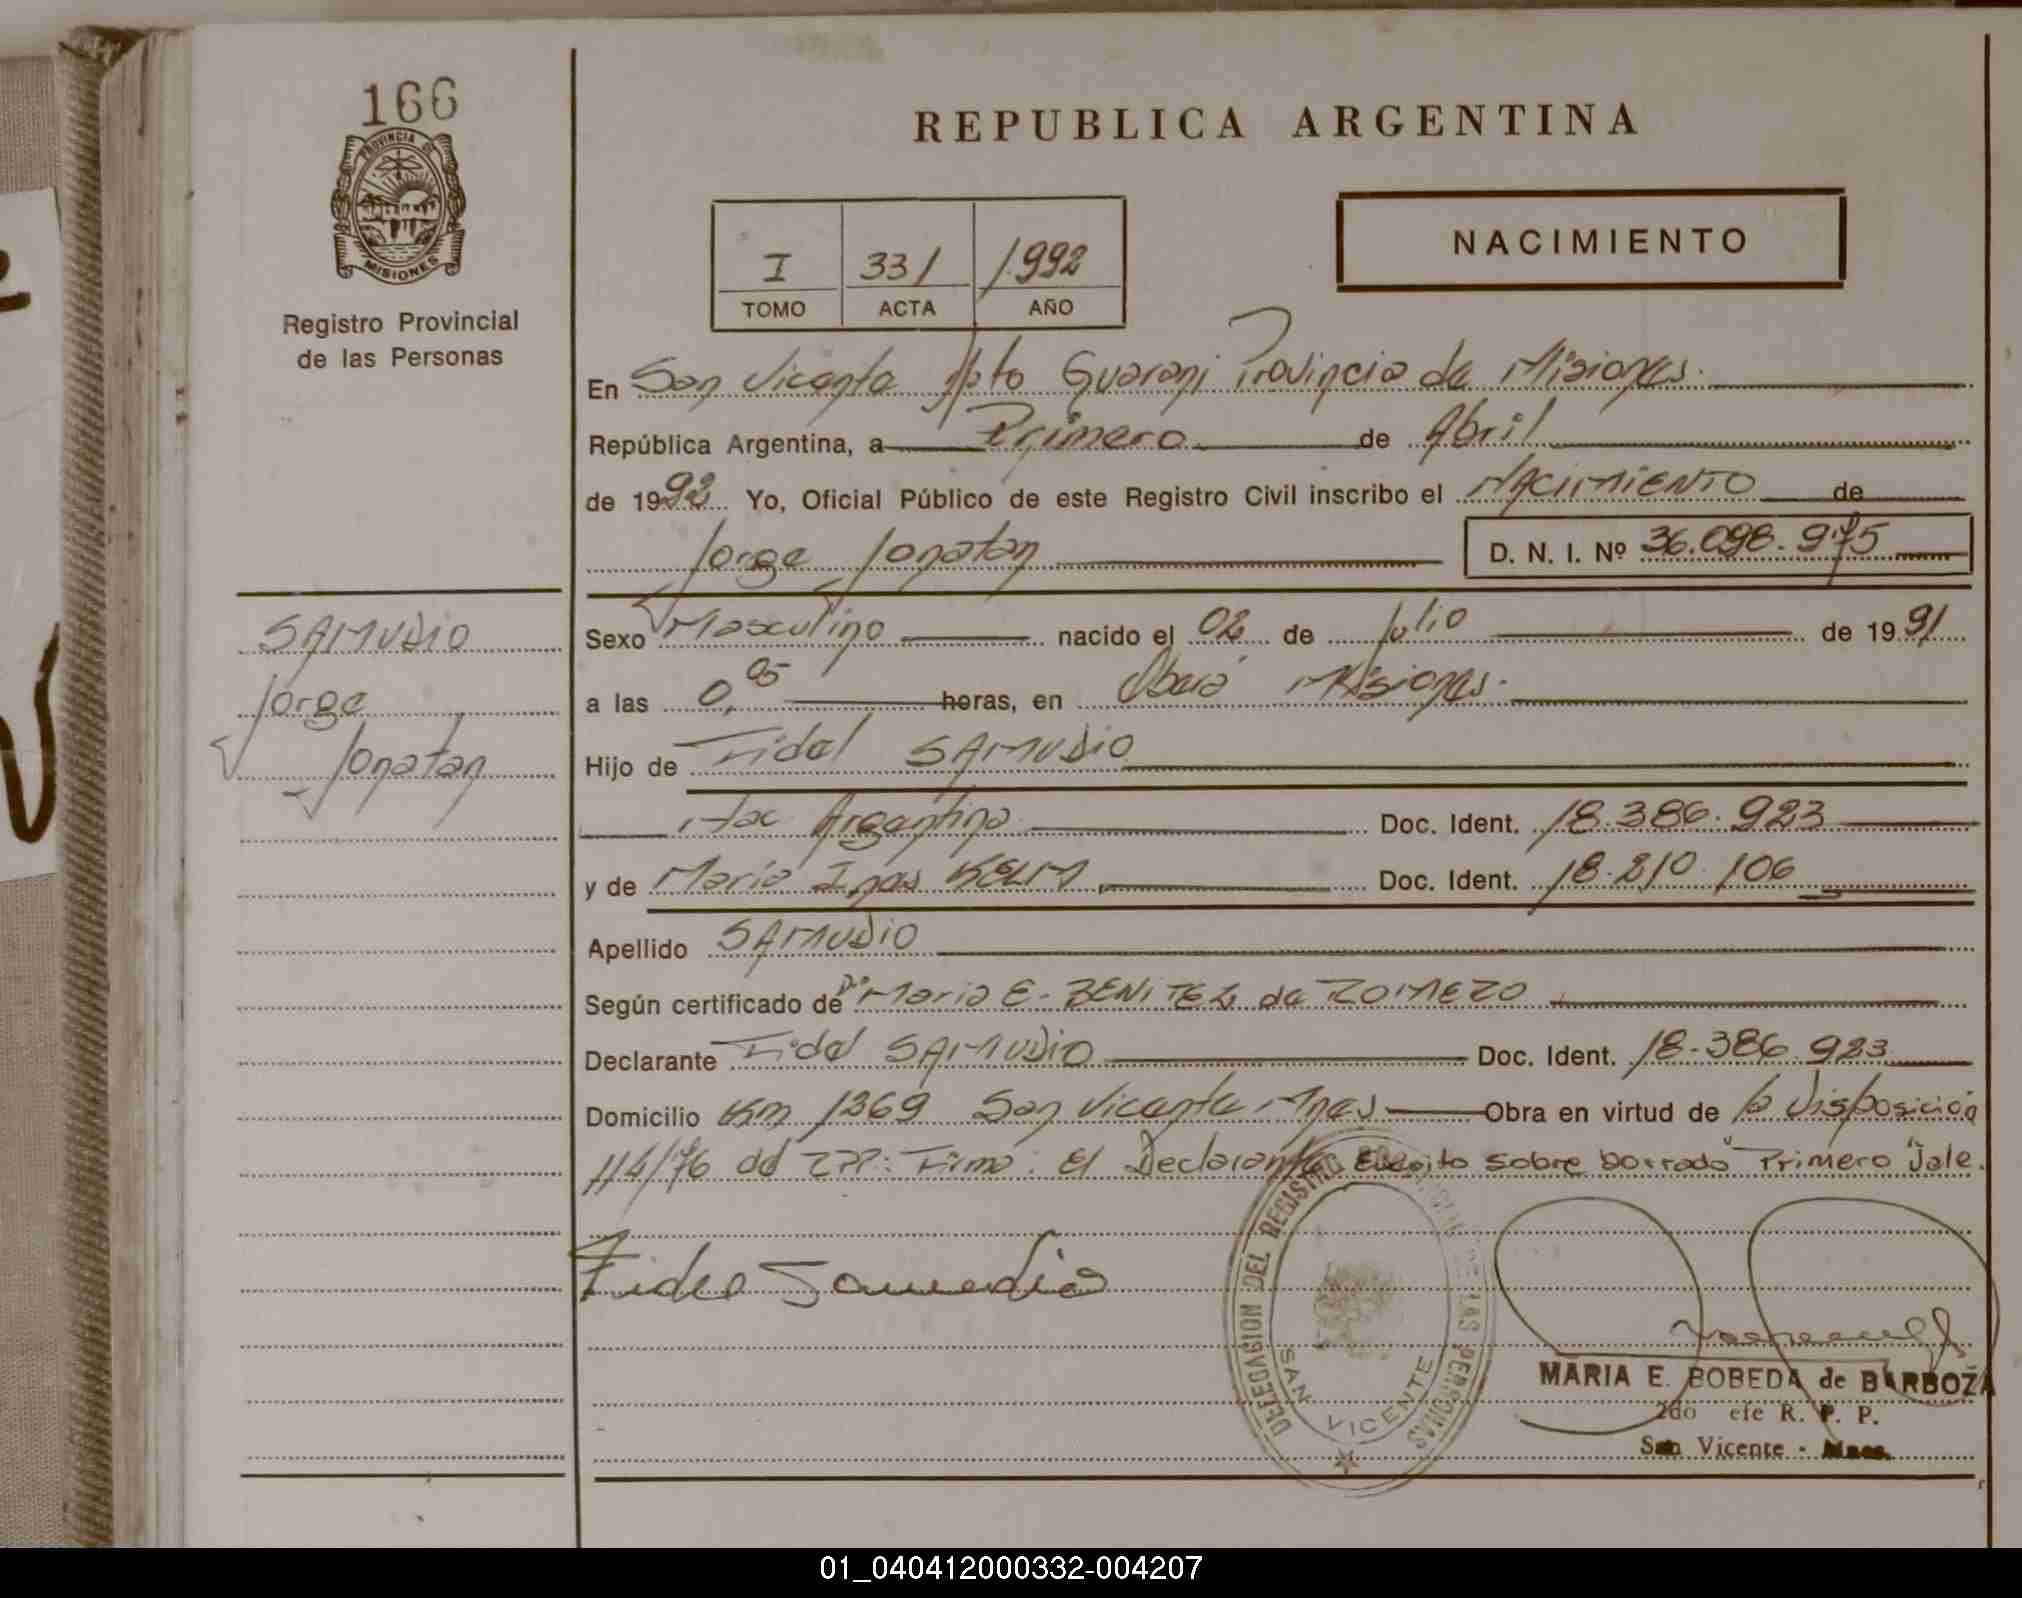 166
PROVINCIA DE
MISIONES
Registro Provincial
de las Personas
SAMUDIO
Jorge
Jonatan
REPUBLICA ARGENTINA
NACIMIENTO
I 331 1992
TOMO ACTA AÑO
En San Vicente Dpto Guarani Provincia de Misiones.
República Argentina, a Primero de Abril
de 1992 Yo, Oficial Público de este Registro Civil inscribo el NACIMIENTO de
Jorge Jonatan D. N. I. Nº 36.098.975
Sexo Masculino nacido el 02 de Julio de 1991
a las 0,05 horas, en Oberá Misiones.
Hijo de Fidel SAMUDIO
Nac Argentino Doc. Ident. 18.386.923
y de María Ines KELM Doc. Ident. 18.210.106
Apellido SAMUDIO
Según certificado de Dra Maria E. BENITEZ de ROMERO
Declarante Fidel SAMUDIO Doc. Ident. 18.386.923
Domicilio Km 1369 San Vicente Mnes Obra en virtud de la Disposición
114/76 del RPP: Firma: El Declarante Escrito sobre borrado "Primero" Vale.
Fidel Samudio
DELEGACION DEL REGISTRO DE LAS PERSONAS
SAN VICENTE
MARIA E. BOBEDA de BARBOZA
2do efe R. P. P.
San Vicente - Mnes.
01_040412000332-004207